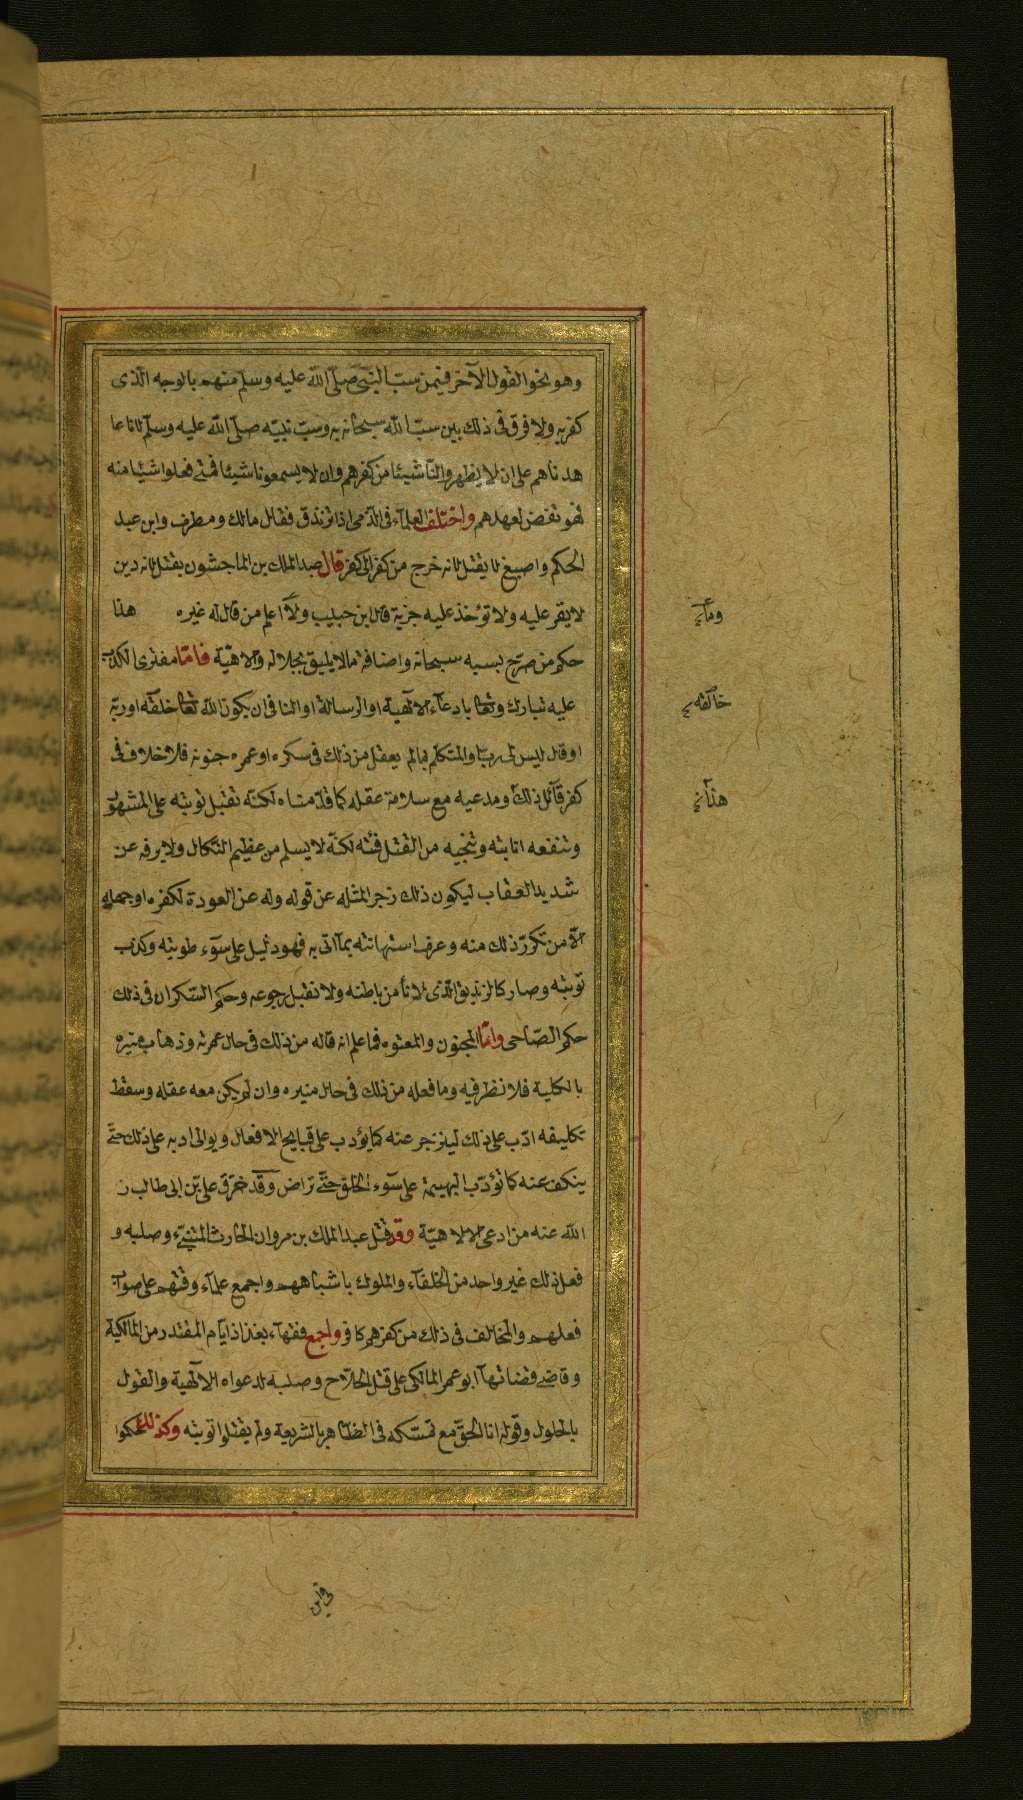 وهو نحو القول الآخر فيمن سبّ النبيّ صلّى الله عليه وسلم منهم بالوجه الّذى
كفر به ولا فرق فى ذلك بين سبّ الله سبحانه وسبّ نبيّه صلّى الله عليه وسلّم لانا عا
هدناهم على ان لا يظهروا لنا شيئا من كفرهم وان لا يسمعونا شيئا فمتى فعلوا شيئا منه
فهو نقض لعهدهم واختلف العلماء فى الذّمى اذا تزندق فقال مالك ومطرف وابن عبد
الحكم واصبغ لا يقتل لانه خرج من كفر الى كفر قال عبد الملك بن الماجشون يقتل لانه دين
لا يقر عليه ولا تؤخذ عليه جزية قال ابن حبيب ولا اعلم من قاله غيره هذا
حكم من صرّح بسبه سبحانه واضافة ما لا يليق بجلاله والاهيّة فامّا مفترى الكذب
عليه تبارك وتعالى بادعاء الالهية او الرسالة او النافى ان يكون الله تعالى خلقه او ربّه
او قال ليس لى ربّ او المتكلّم بما لم يعقل من ذلك فى سكره او غمره جنونه فلا خلاف فى
كفر قائل ذلك ومدعيه مع سلامة عقله كما قدّمناه لكنّه تقبل توبته على المشهور
وتنفعه انابته وتنجيه من القتل فتنه لكنّه لا يسلم من عظيم النّكال ولا يرفه عن
شديد العقاب ليكون ذلك زجر المثله عن قوله وله عن العودة لكفره او جهله
الّا من تكرّر ذلك منه وعرف استهانته بما أتى به فهو دليل على سوء طويته وكذب
توبته وصار كالزنديق الّذى لا نأمن باطنه ولا نقبل رجوعه وحكم السّكران فى ذلك
حكم الصّاحى وامّا المجنون والمعتوه فما علم انه قاله من ذلك فى حال غمرته وذهاب ميزه
بالكلية فلا نظر فيه وما فعله من ذلك فى حال ميزه وان لم يكن معه عقله وسقط
تكليفه ادّب على ذلك لينزجر عنه كما يؤدب على قبايح الافعال ويوالى ادبه على ذلك حتّى
ينكف عنه كما تؤدّب البهيمة على سوء الخلق حتّى تراض وقد حرق علىّ بن ابى طالب ر
الله عنه من ادعى الالاهيّة وقد قتل عبد الملك بن مروان الحارث المتنبّئ وصلبه و
فعل ذلك غير واحد من الخلفاء والملوك باشباههم واجمع علماء وقتهم على صواب
فعلهم والمخالف فى ذلك من كفرهم كافر واجمع فقهاء بغداذ ايام المقتدر من المالكية
وقاضى قضاتها ابو عمر المالكى على قتل الحلّاج وصلبه لدعواه الالهية والقول
بالحلول وقوله انا الحقّ مع تمسّكه فى الظّاهر بالشريعة ولم يقبلوا توبته وكذلك حكموا